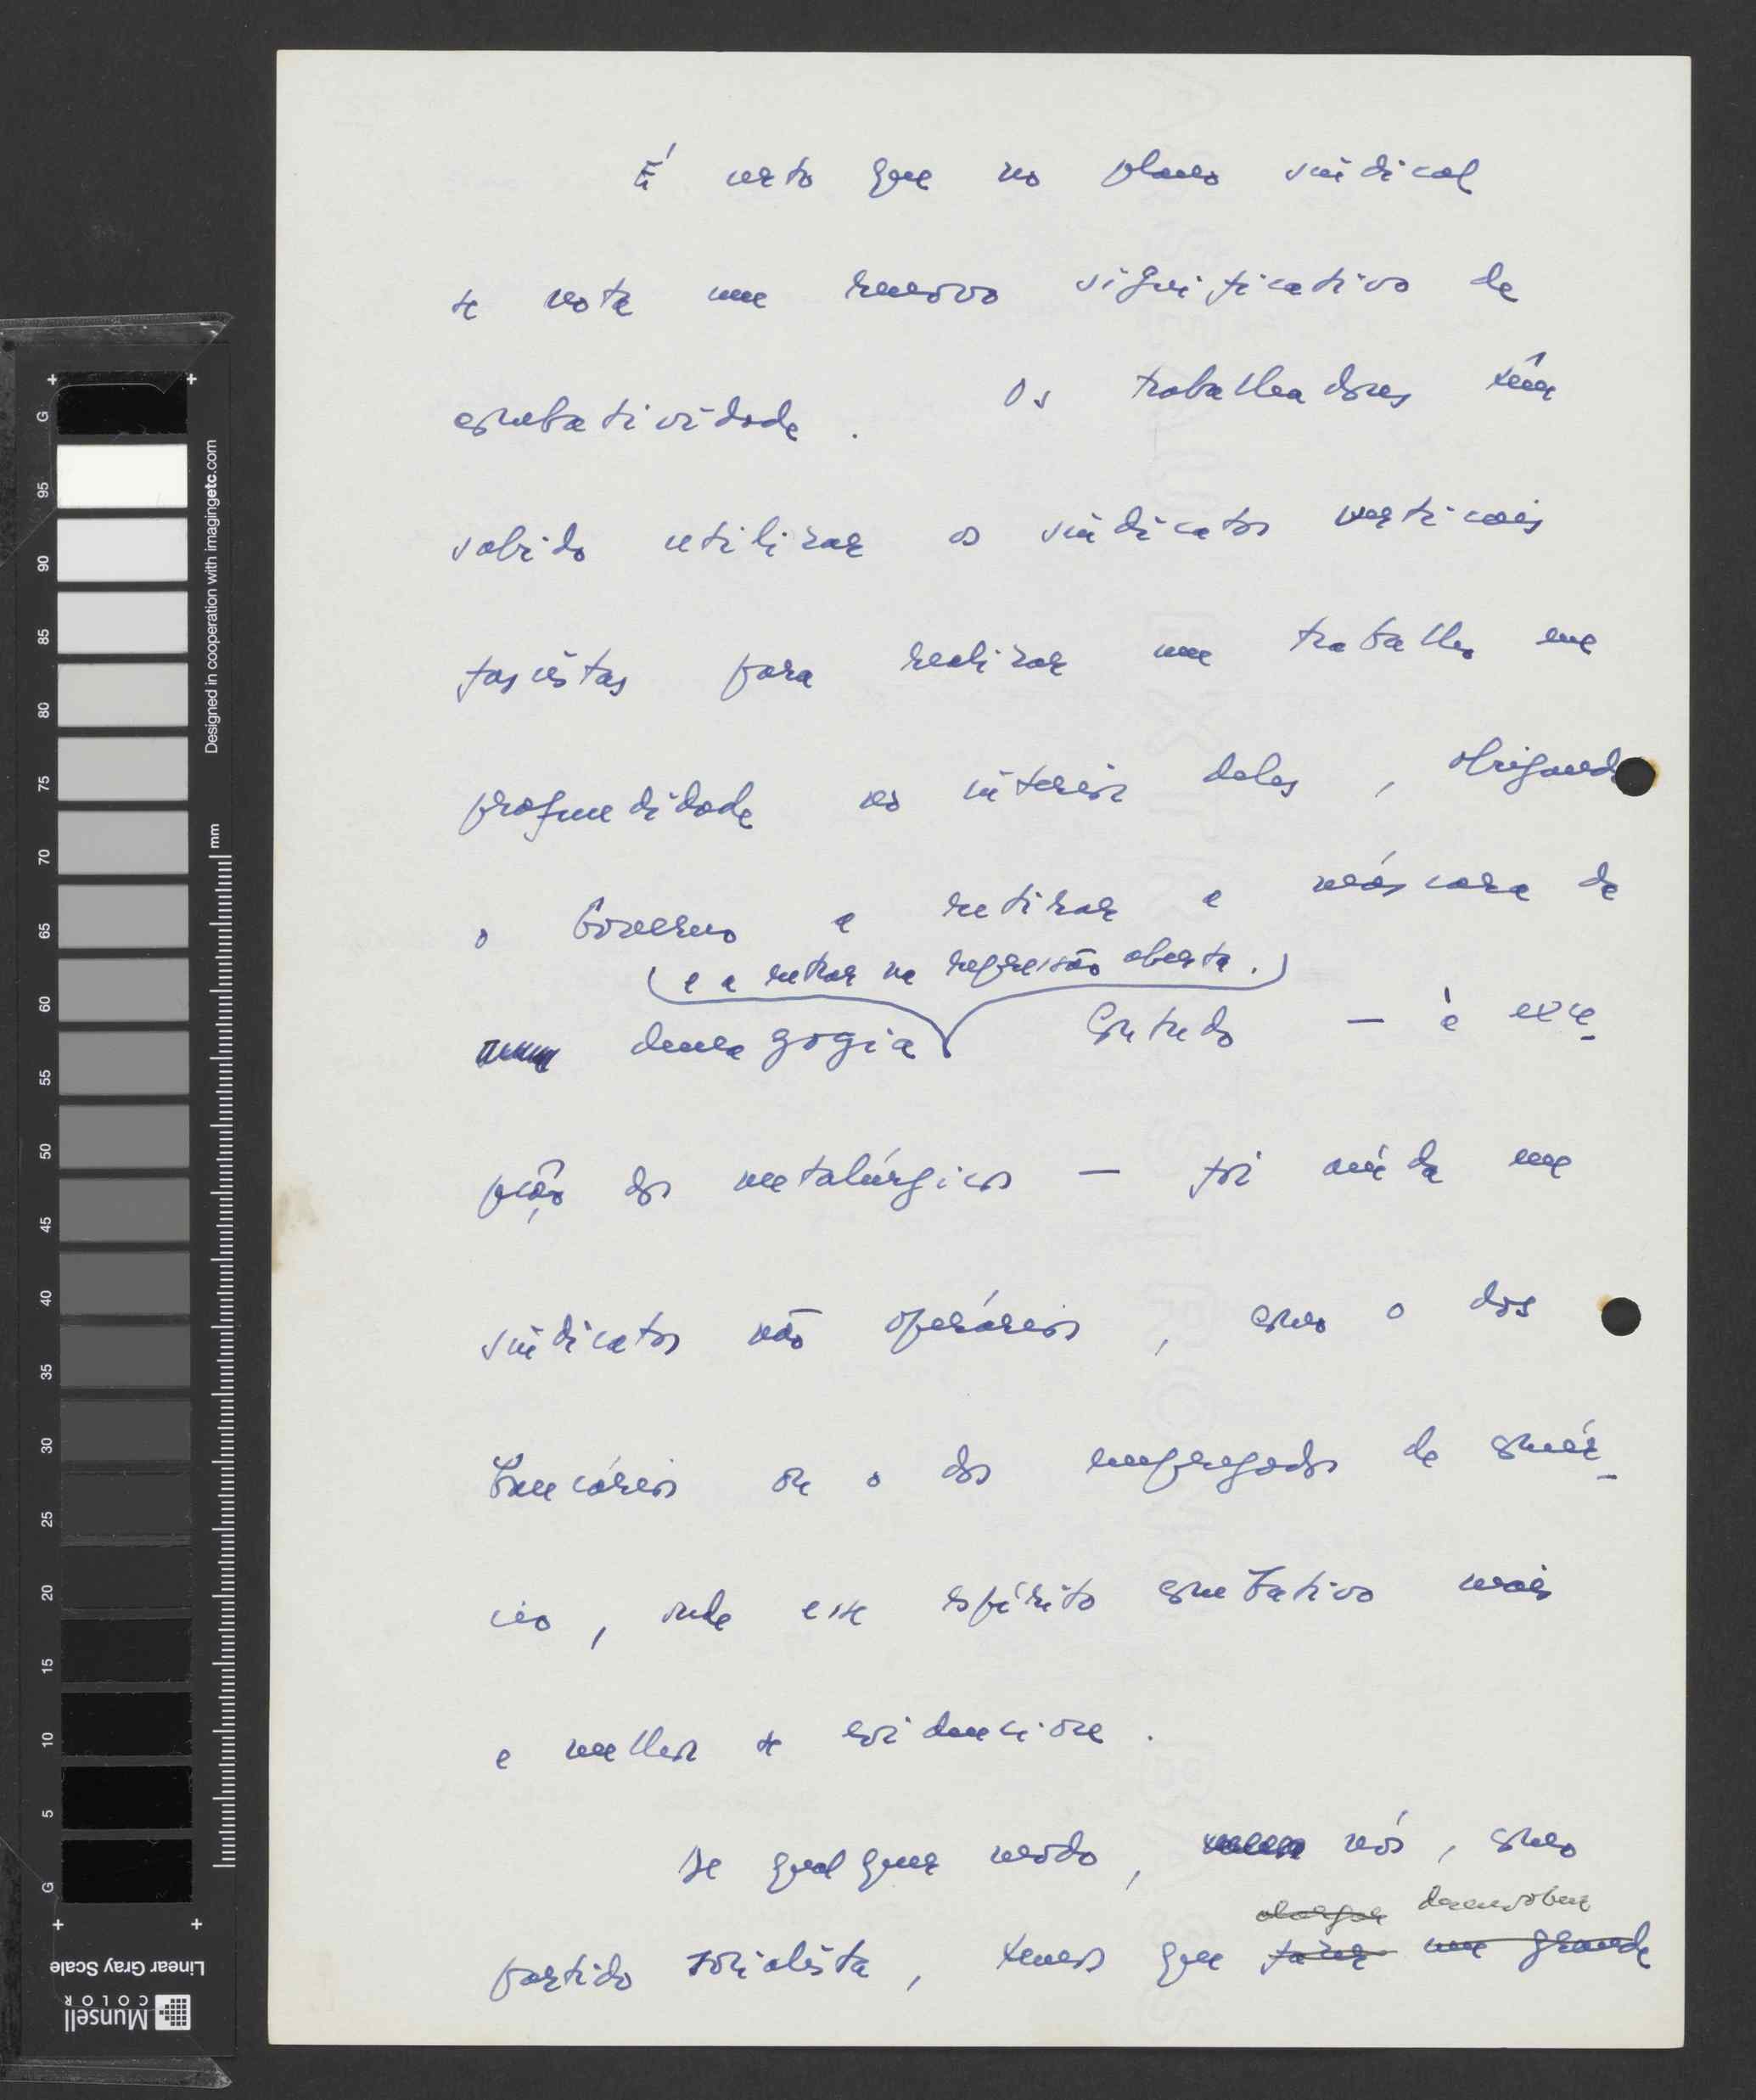 É certo que no plano sindical
se nota um renovo significativo de
combatividade. Os trabalhadores têm
sabido utilizar os sindicatos verticais
fascistas para realizar um trabalho em
profundidade no interior deles, obrigando
o Governo a retirar a máscara da
(e a entrar na repressão aberta.)
demagogia Contudo — à exce-
pção dos metalúrgicos — foi ainda em
sindicatos não operários, como o dos
bancários ou o dos empregados de comér-
cio, onde esse espírito combativo mais
e melhor se evidenciou.
De qualquer modo, nós, como
alargar desenvolver
partido socialista, temos que fazer um grande
G 95 90 85 80 75 70 65 60 55 50 45 40 35 30 25 20 15 10 5 G
mm
Designed in cooperation with imagingetc.com
Linear Gray Scale
Munsell
COLOR